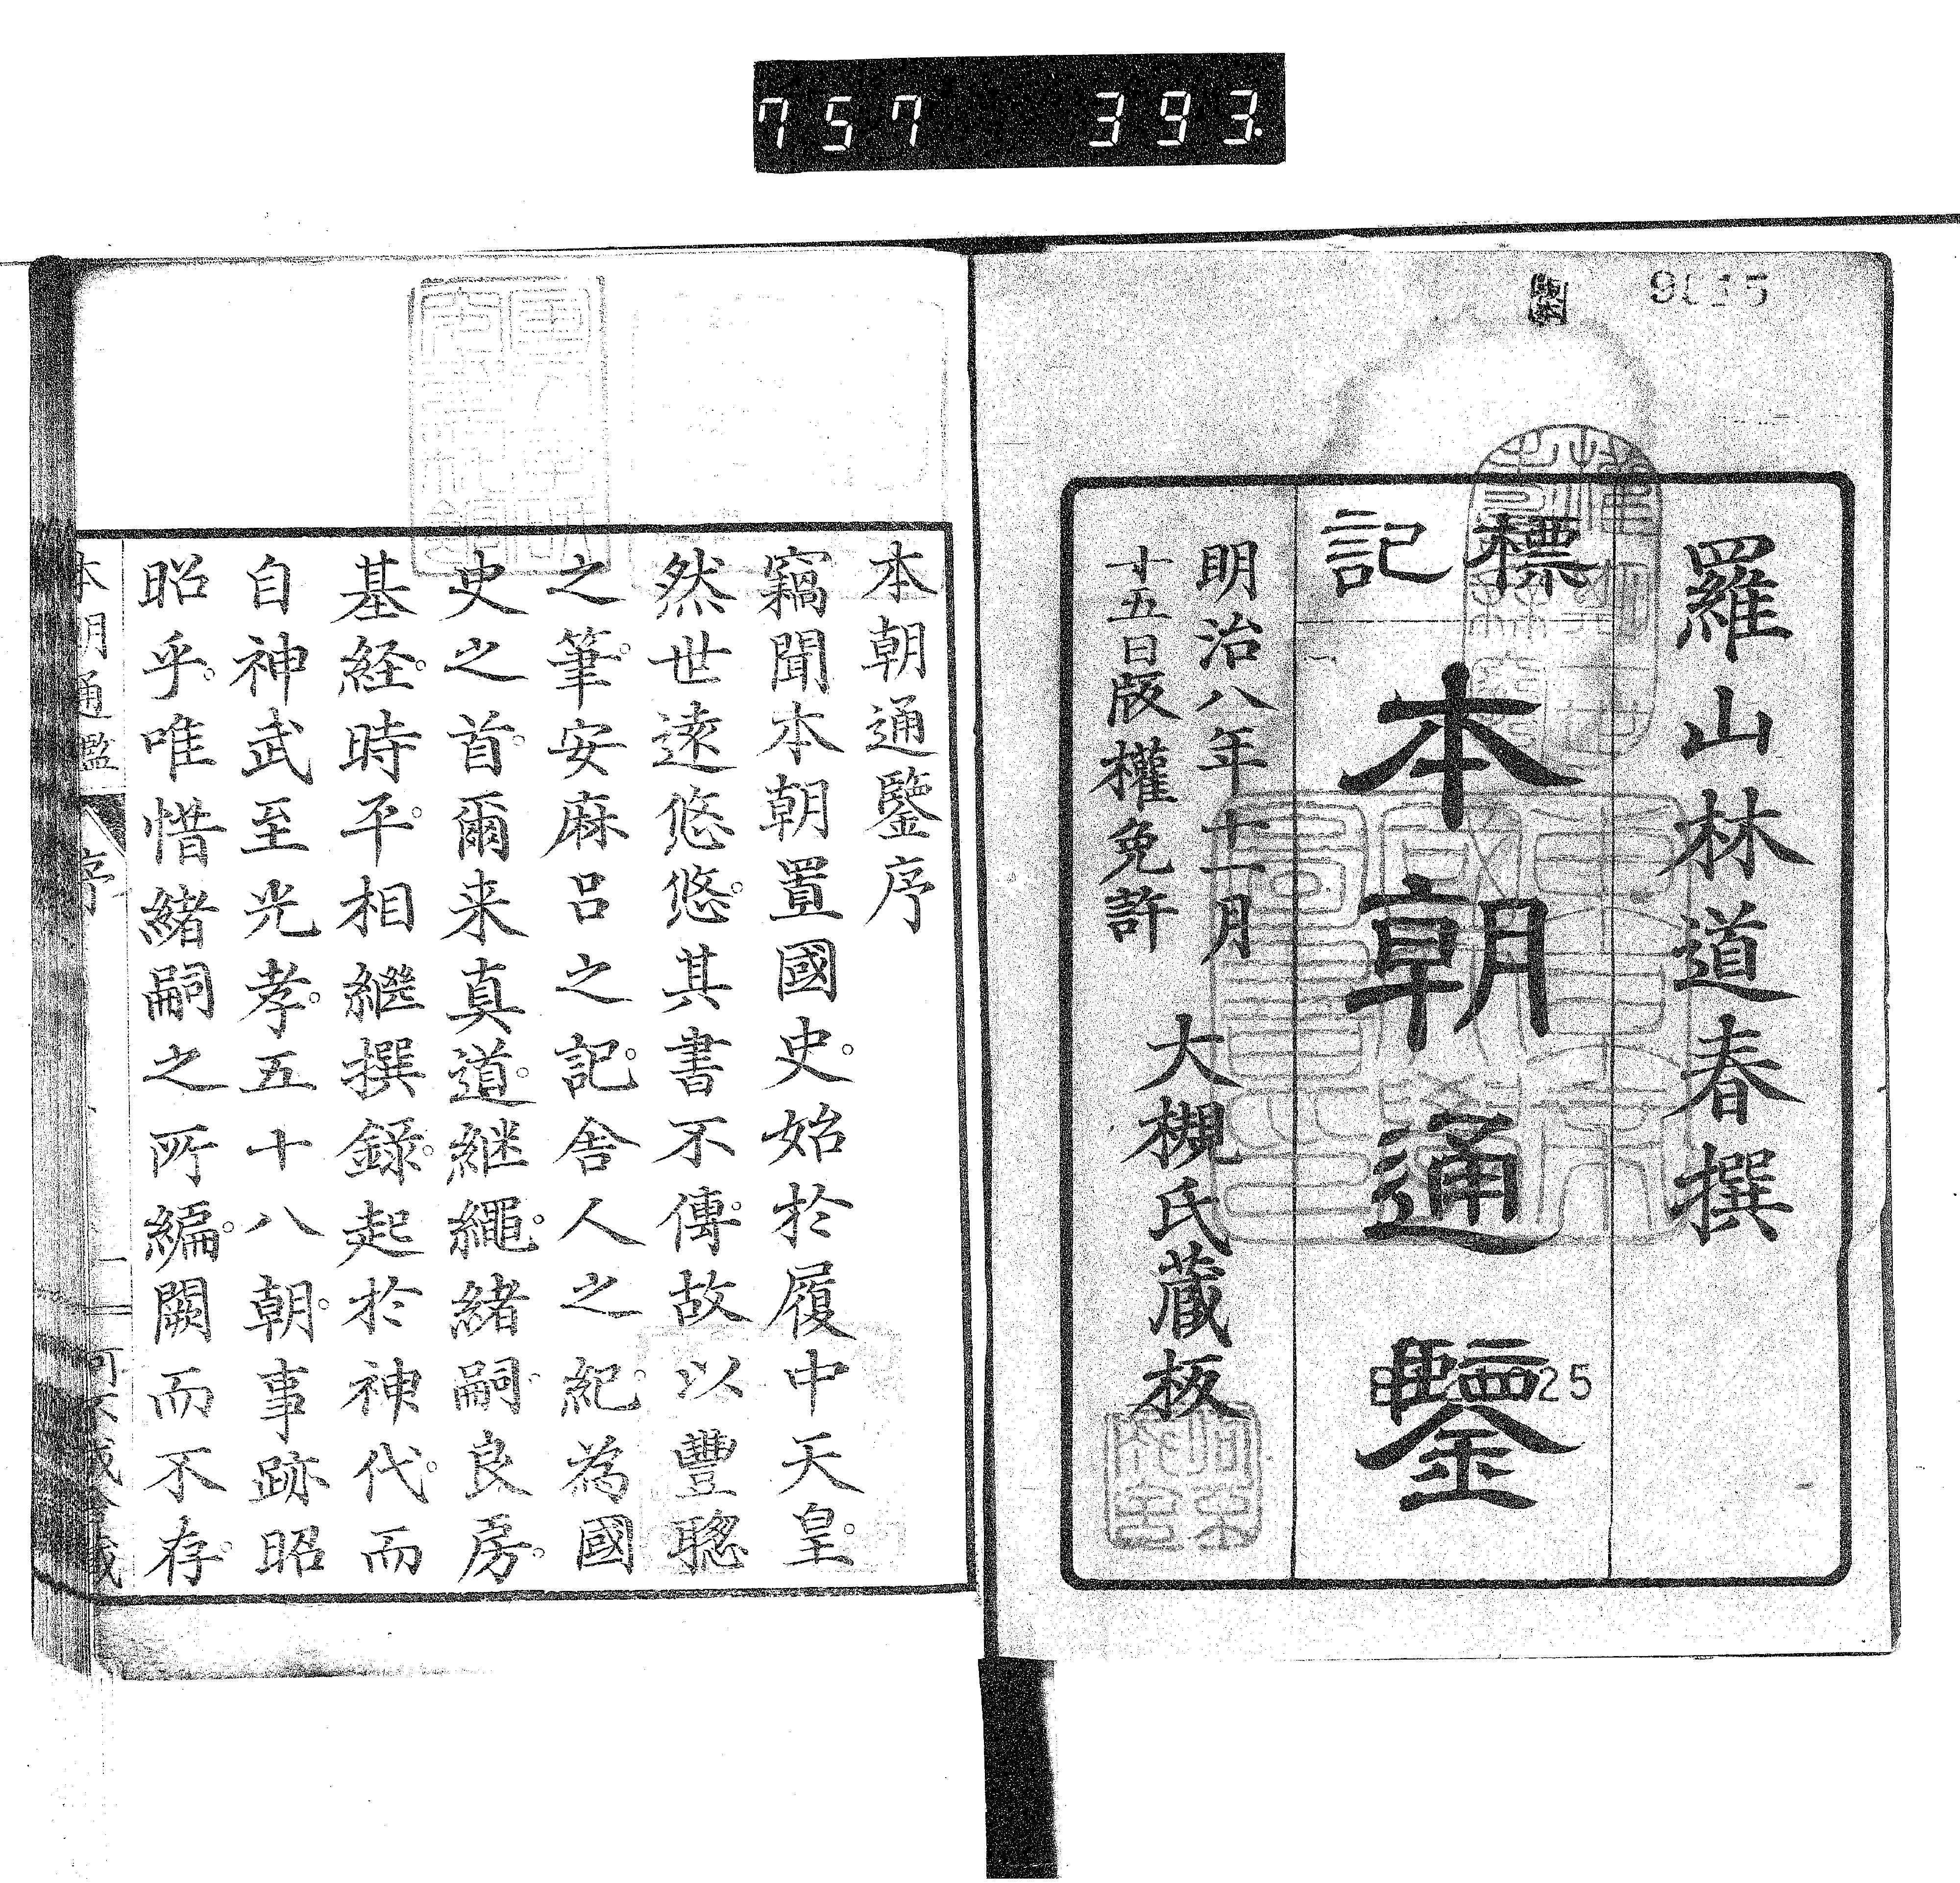 757 393.
羅山林道春撰
標記
本朝通鑒
明治八年十一月
十五日版權免許
大槻氏藏板
本朝通鑒序
竊聞本朝置國史。始於履中天皇。
然世遠悠悠。其書不傳。故以豐聰
之筆。安麻呂之記。舍人之紀。為國
史之首。爾来真道。継繩。緒嗣。良房。
基経。時平。相繼撰錄。起於神代。而
自神武至光孝。五十八朝。事跡昭
昭乎。唯惜緒嗣之所編。闕而不存。
本朝通鑑 序 一